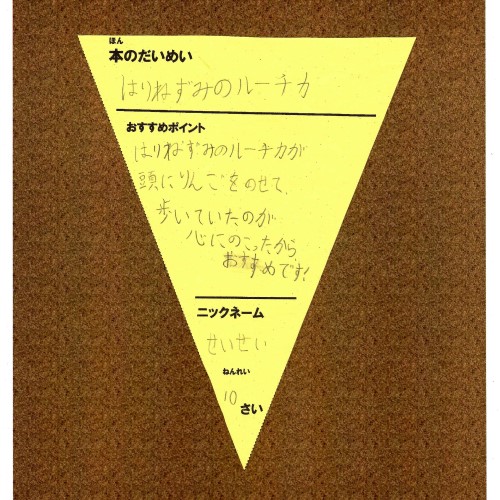 ほん
本のだいめい
はりねずみのルーチカ
おすすめポイント
はりねずみのルーチカが
頭にりんごをのせて、
歩いていたのが
心にのこったから
おすすめです!
ニックネーム
せいせい
ねんれい
10さい